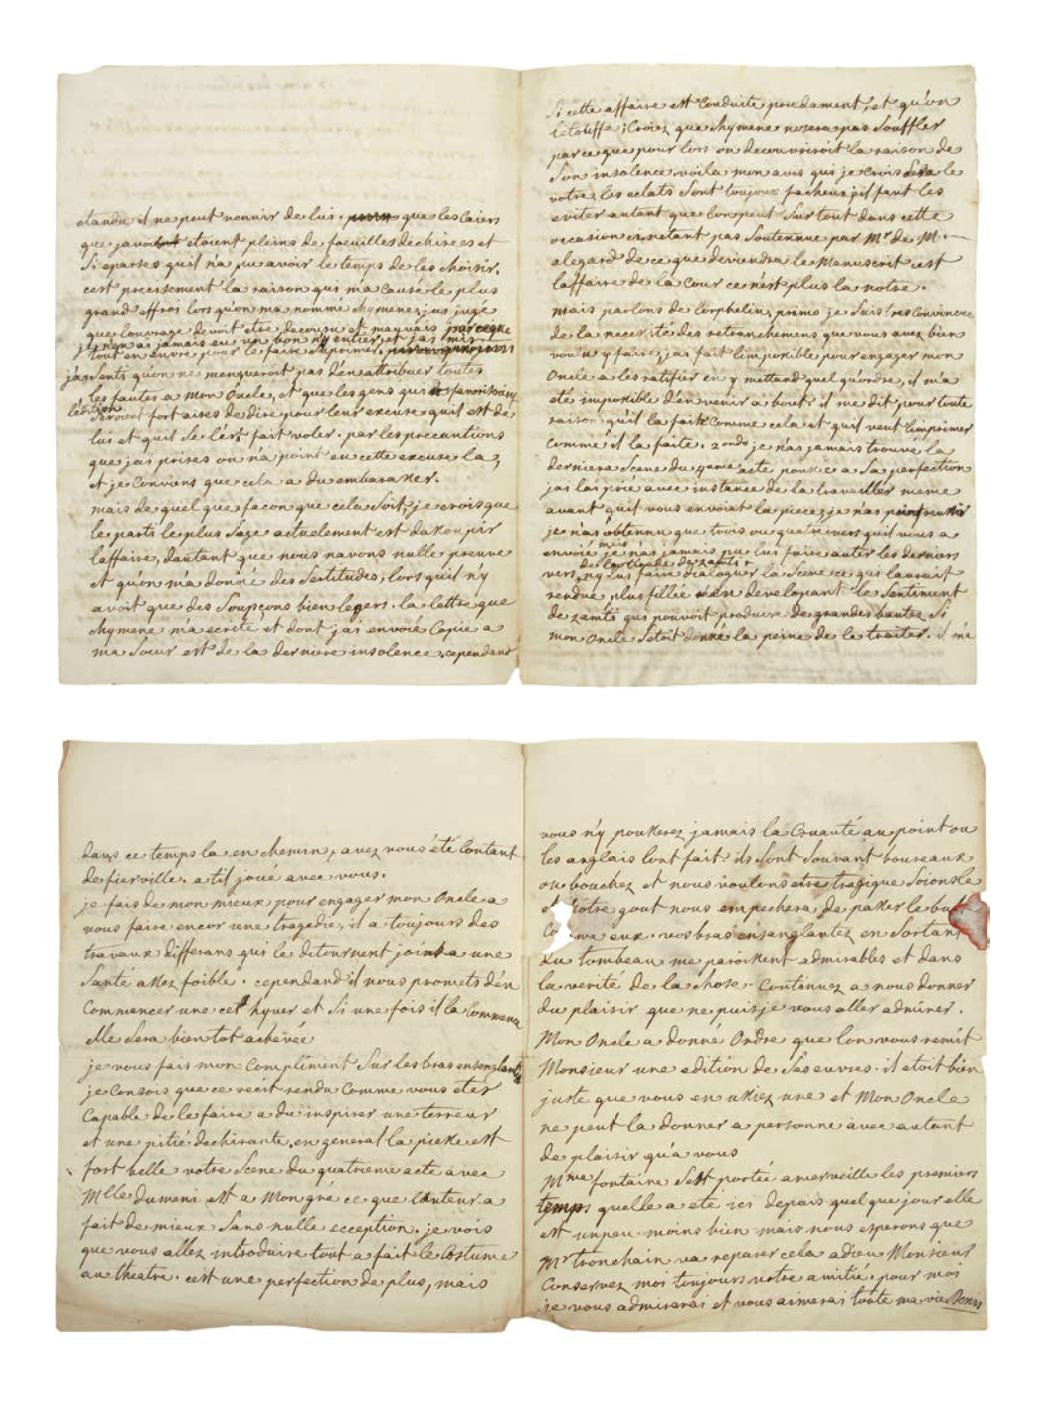 etandu il ne peut vennir de lui. que les caiers
que javois etoient pleins de faeuilles dechirees et
si eparses quil n'a pu avoir le temps de les choisir.
cest precisement la raison qui m'a causé le plus
grand effroi lors qu'on ma nommé chymene, jai jugé
que louvrage devoit etre decousu et mauvais parceque
je n'en ai jamais eu un bon ny entier et jai
tout en euvre pour le faire suprimer
j'ai senti qu'on ne menqueroit pas d'en attribuer toutes
les fautes a mon Oncle, et que les gens qui favorisoient
lédition seroient fort aises de dire pour leur excuse quil est de
lui et quil se l'est fait voler. par les precautions
que j'ai prises on n'a point eu cette excuse la,
et je conviens que cela a du embarasser.
mais de quel que façon que cela soit, je crois que
le parti le plus sage actuelement est d'assoupir
laffaire, dautant que nous navons nulle preuve
et quon m'a donné des sertitudes, lors quil n'y
avoit que des soupçons bien legers. la lettre que
chymene m'a ecrite et dont j'ai envoié copie a
ma soeur est de la derniere insolence. cependant
si cette affaire est conduite prudament, et qu'on
letouffe, croiez que chymene nosera pas souffler
parce que pour lors on decouvriroit la raison de
son insolence. voila mon avis qui je crois sera le
votre, les eclats sont toujours facheux, il faut les
eviter autant que lon peut sur tout dans cette
occasion cy netant pas soutenue par Mr de M.
alegard de ce que deviendra le manuscrit cest
laffaire de la cour ce n'est plus la notre.
mais parlons de lorphelin, primo je suis convaincue
de la necessité des retranchemens que vous avez bien
voulu y faire, jai fait limposible pour engager mon
Oncle a les ratifier en y mettand quel qu'ordre, il m'a
eté imposible d'en venir a bout. il me dit pour toute
raison qu'il la faite comme cela et quil veut limprimer
comme il la faite. 2ondo je n'ai jamais trouvé la
derniere scene du 4eme acte poussée a sa perfection
jai lai prié avec instance de la travailler meme
avant quil vous envoiat la piece, je n'ai
je n'ai obtenu que trois ou quatre vers quil vous a
envoié mais je n'ai jamais pu lui faire auter les derniers
vers, de zamti ny lui faire dialoguer la scene ce qui lauroit
rendue plus fillée en developant le sentiment
de zamti qui pouvoit produire de grandes bautez si
mon Oncle setoit donné la peine de la traiter. il m'a
dans ce temps la en chemin, avez vous été contant
de fierville. a til joué avec vous.
je fais de mon mieux pour engager mon Oncle a
vous faire encor une tragedie, il a toujours des
travaux differans qui le ditournent joint a une
santé assez foible. cependand il nous promets d'en
commencer une cet hyver et si une fois il la commence
elle sera bientot achevée
je vous fais mon compliment sur les bras ensenglantés
je consois que ce recit rendu comme vous etes
capable de le faire a du inspirer une terreur
et une pitié dechirante. en general la piesse est
fort belle votre scene du quatrieme acte avec
Mlle dumeni est a mon gré ce que lauteur a
fait de mieux sans nulle ecception. je vois
que vous allez introduire tout a fait le costume
au theatre. cest une perfection de plus, mais
vous n'y pousserez jamais la cruauté au point ou
les anglais lont fait. ils sont souvant boureaux
ou bouchez et nous voulons etre tragique soions le
et votre gout nous empechera de passer le but
comme eux. vos bras ensanglantez en sortant
du tombeau me paroissent admirables et dans
la verité de la chose. continuez a nous donner
du plaisir que ne puisje vous aller admirer.
Mon Oncle a donné ordre que lon vous remit
Monsieur une edition de ses euvres. il etoit bien
juste que vous en ussiez une et mon Oncle
ne peut la donner a personne avec autant
de plaisir qu'a vous
Mme fontaine sest portée a merveille les premiers
temps quelle a eté ici depuis quel que jour elle
est un peu moins bien mais nous esperons que
Mr tronchain va reparer cela adieu Monsieur
conservez moi toujours votre amitié. pour moi
je vous admirerai et vous aimerai toute ma vie Denis